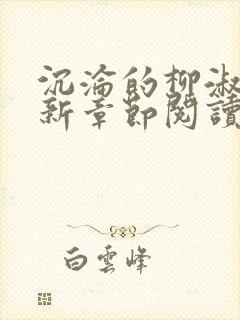 沉淪的柳淑
新章節閱讀
白雲峰